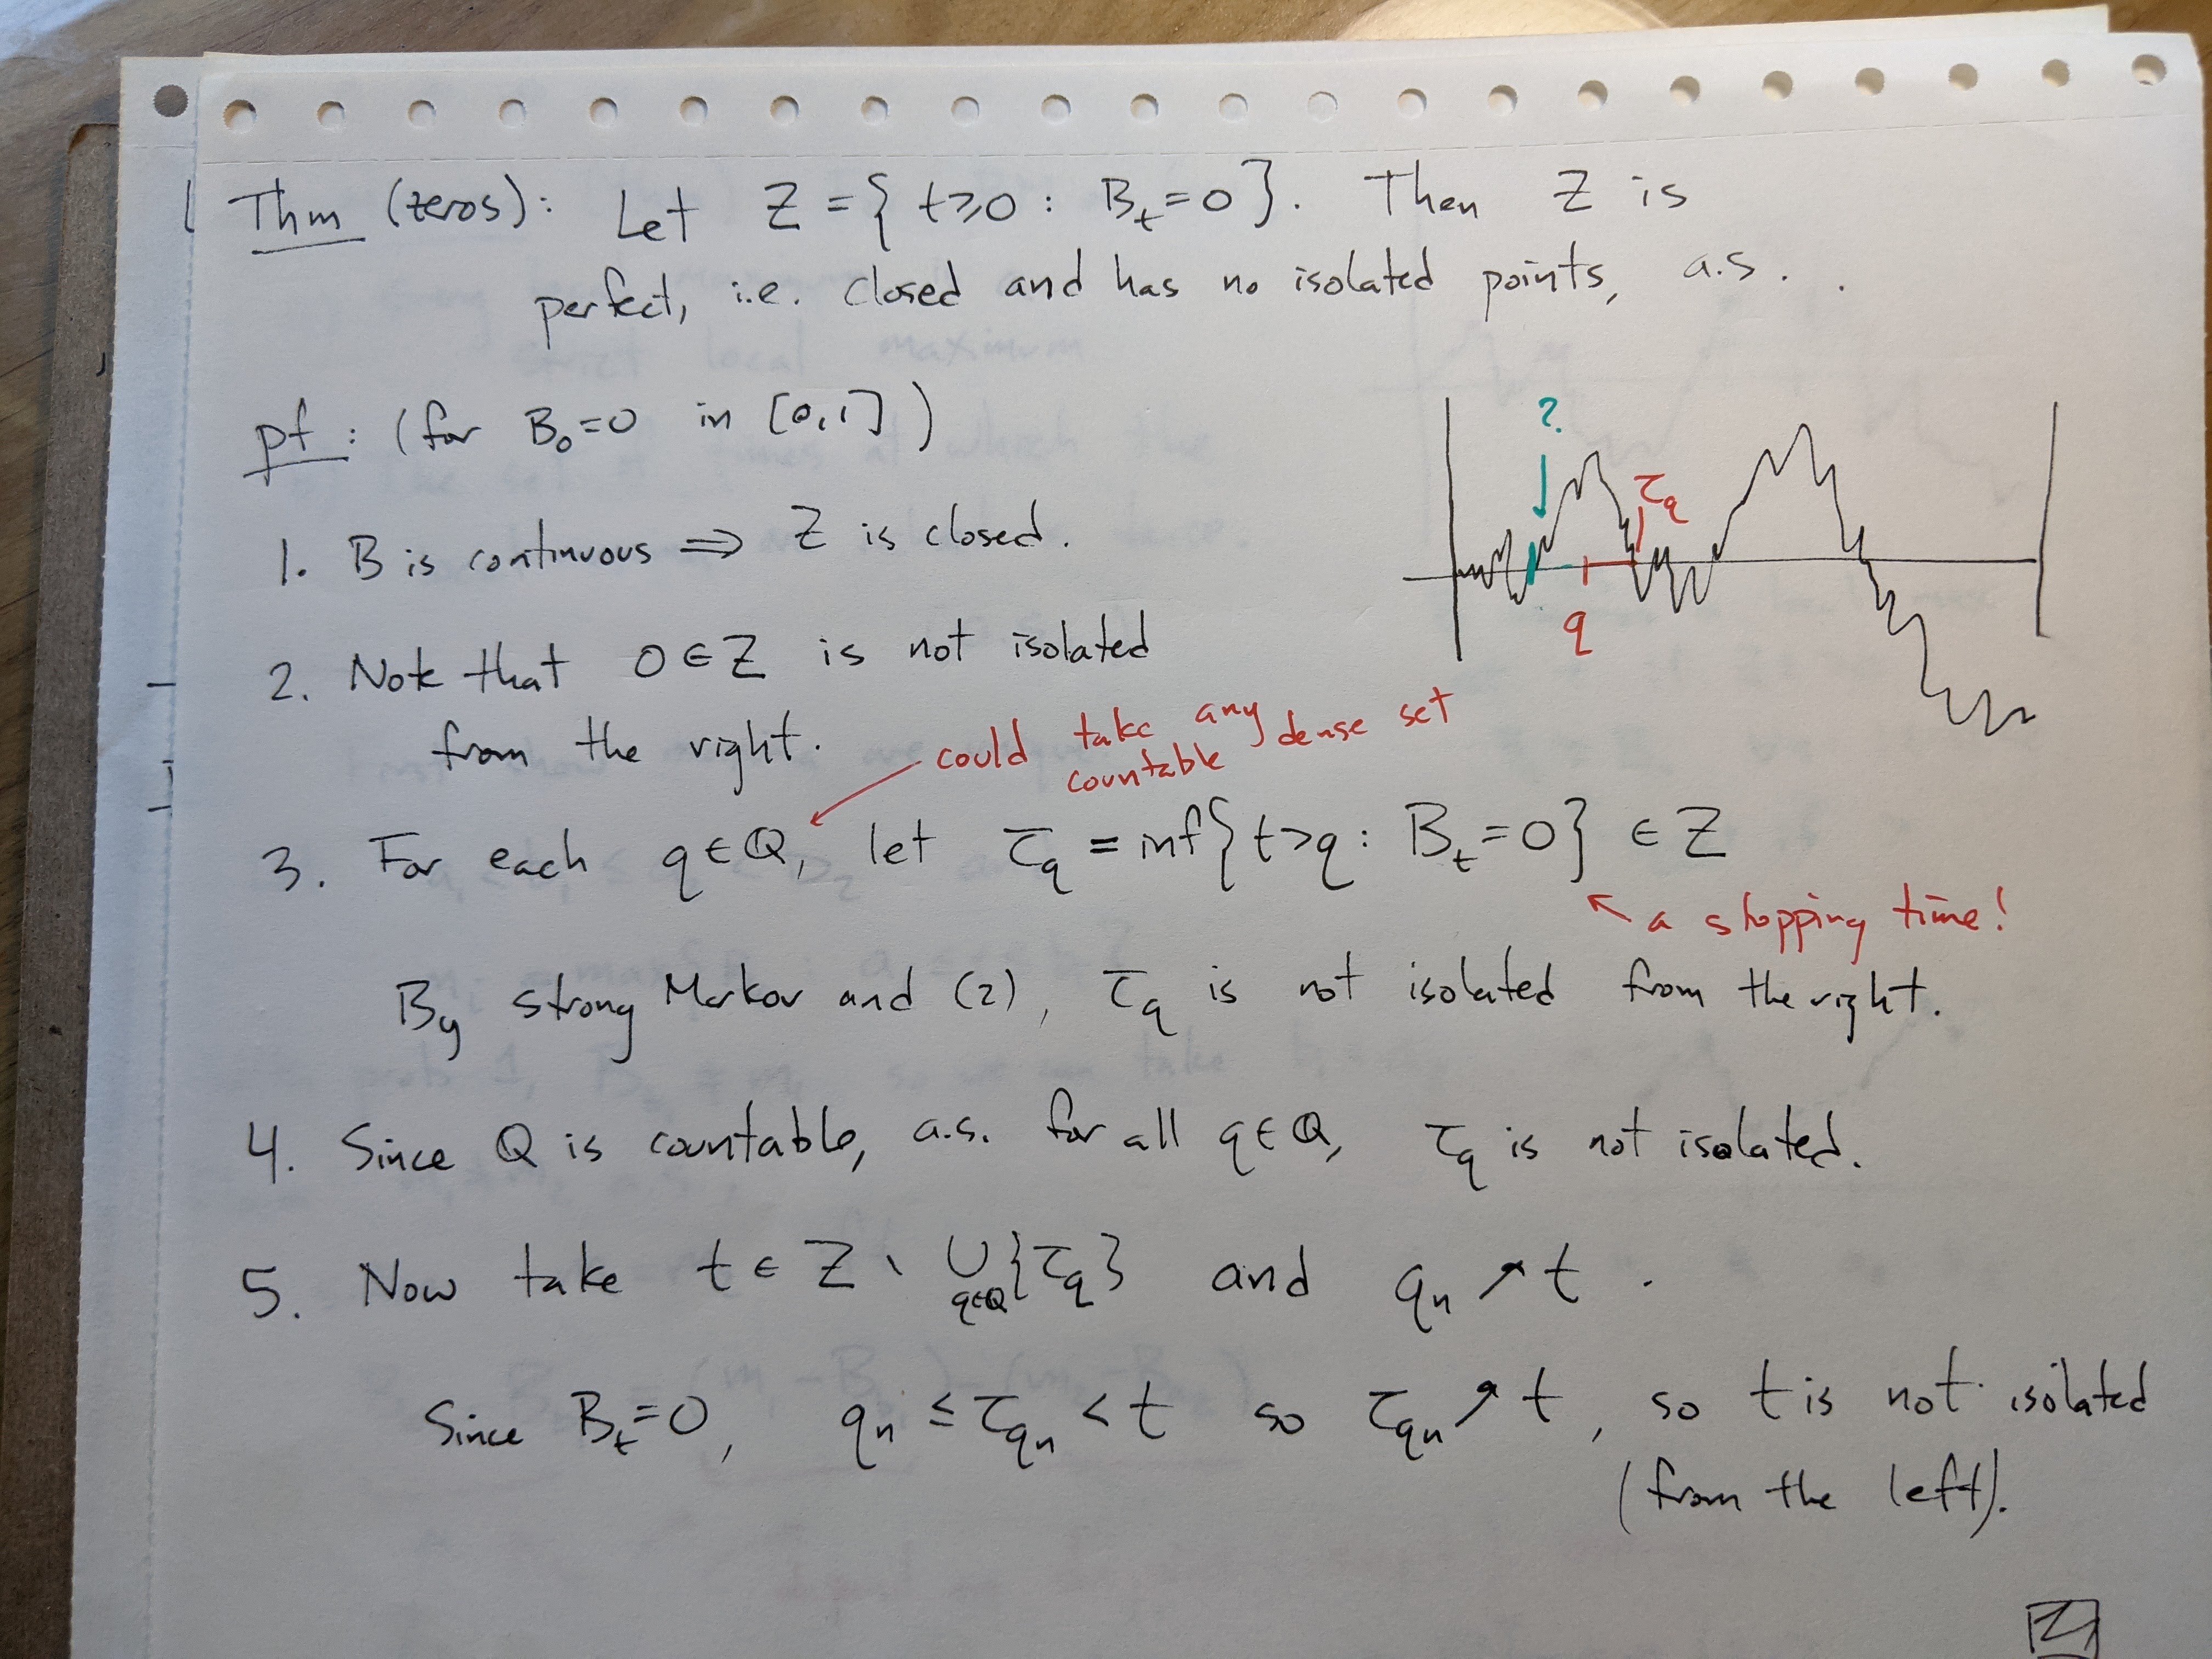 Thm (zeros): Let Z = { t≥0 : B_t=0 }. Then Z is
perfect, i.e. closed and has no isolated points, a.s.
pf: (for B_0=0 in [0,1])
?
τ_q
q
1. B is continuous ⇒ Z is closed.
2. Note that 0∈Z is not isolated
from the right.
could take any countable dense set
3. For each q∈ℚ, let τ_q = inf{t>q: B_t=0} ∈ Z
a stopping time!
By strong Markov and (2), τ_q is not isolated from the right.
4. Since ℚ is countable, a.s. for all q∈ℚ, τ_q is not isolated.
5. Now take t ∈ Z \ ∪_{q∈ℚ}{τ_q} and q_n ↗ t.
Since B_t=0, q_n ≤ τ_{q_n} < t so τ_{q_n} ↗ t, so t is not isolated
(from the left).